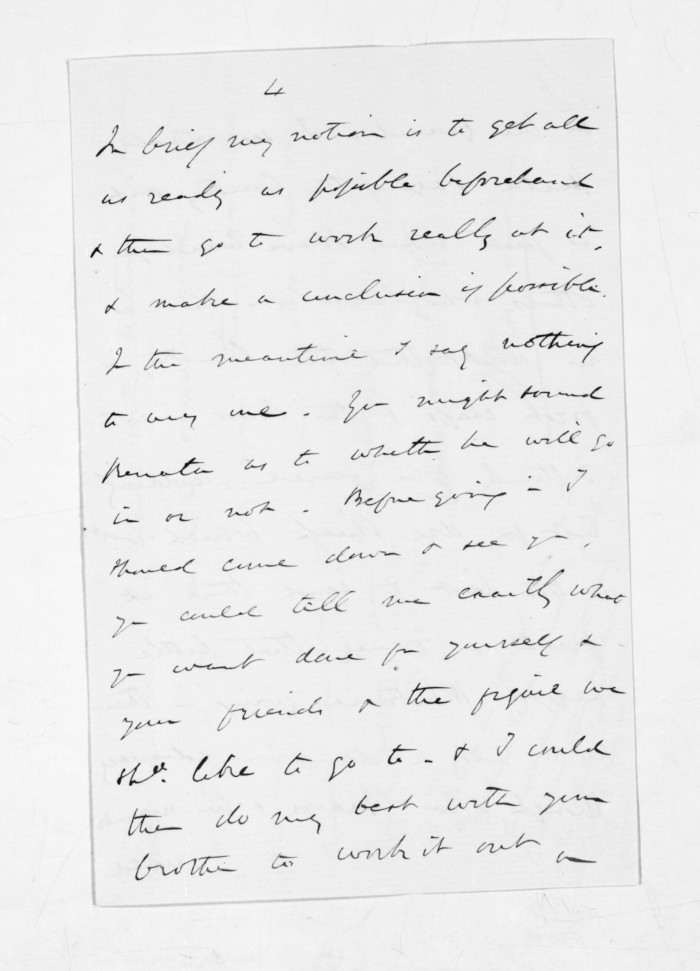 4
In brief my notion is to get all
as ready as possible beforehand
& then go to work really at it,
& make a conclusion if possible.
In the meantime I say nothing
to any one. You might sound
Renata as to whether he will go
in or not. Before going in I
should come down & see you,
you could tell me exactly what
you want done for yourself &
your friends & the figure we
shd. like to go to - & I could
then do my best with your
brother to work it out on